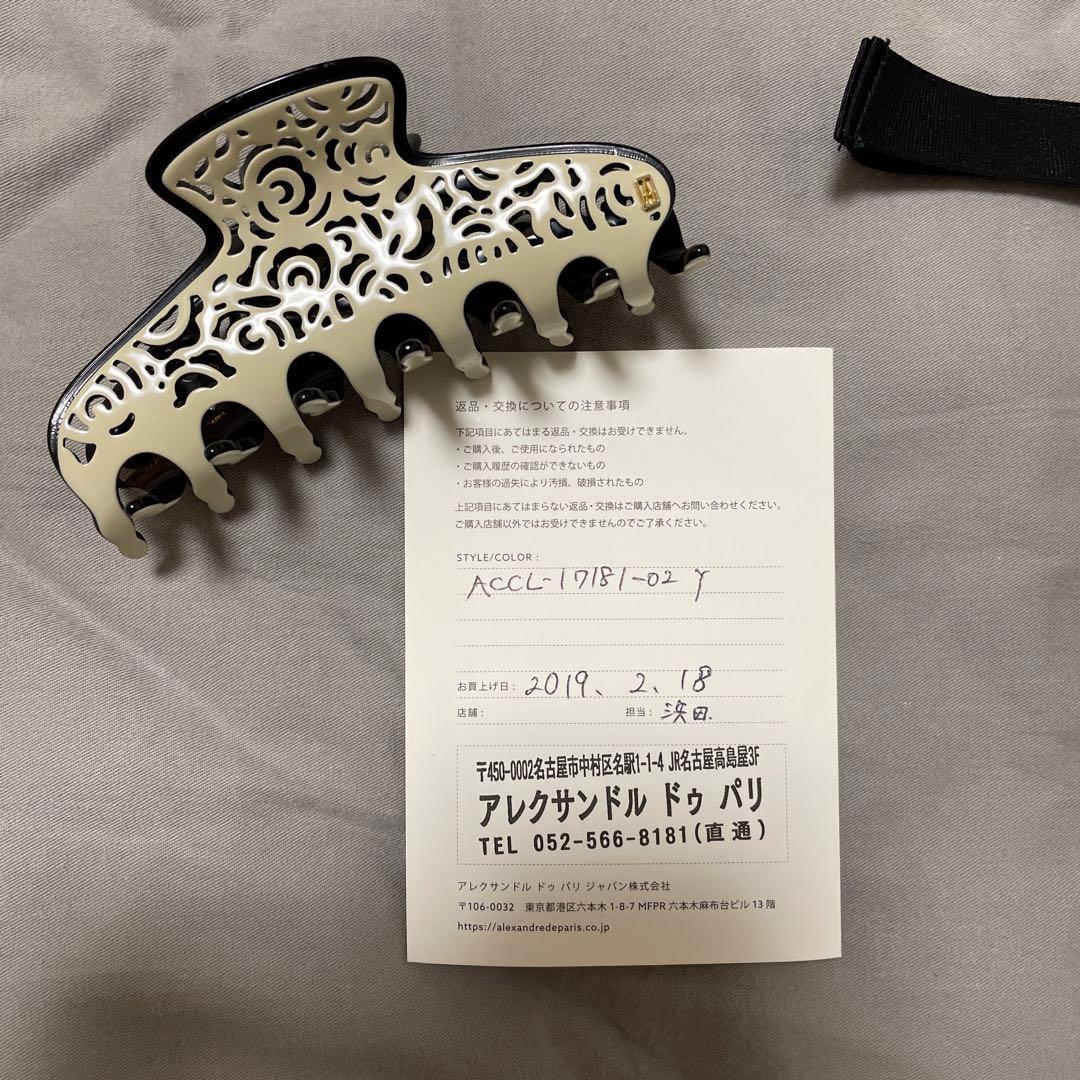 PARIS
返品・交換についての注意事項
下記項目にあてはまる返品・交換はお受けできません。
・ご購入後、ご使用になられたもの
・ご購入履歴の確認ができないもの
・お客様の過失により汚損、破損されたもの
上記項目にあてはまらない返品・交換はご購入店舗へお問い合わせください。
ご購入店舗以外ではお受けできませんのでご了承ください。
STYLE/COLOR :
ACCL-17181-02 Y
お買上げ日 : 2019、2、18
店舗 : 担当 : 浜田
〒450-0002名古屋市中村区名駅1-1-4 JR名古屋高島屋3F
アレクサンドル ドゥ パリ
TEL 052-566-8181(直通)
アレクサンドル ドゥ パリ ジャパン株式会社
〒106-0032 東京都港区六本木 1-8-7 MFPR 六本木麻布台ビル 13 階
https://alexandredeparis.co.jp